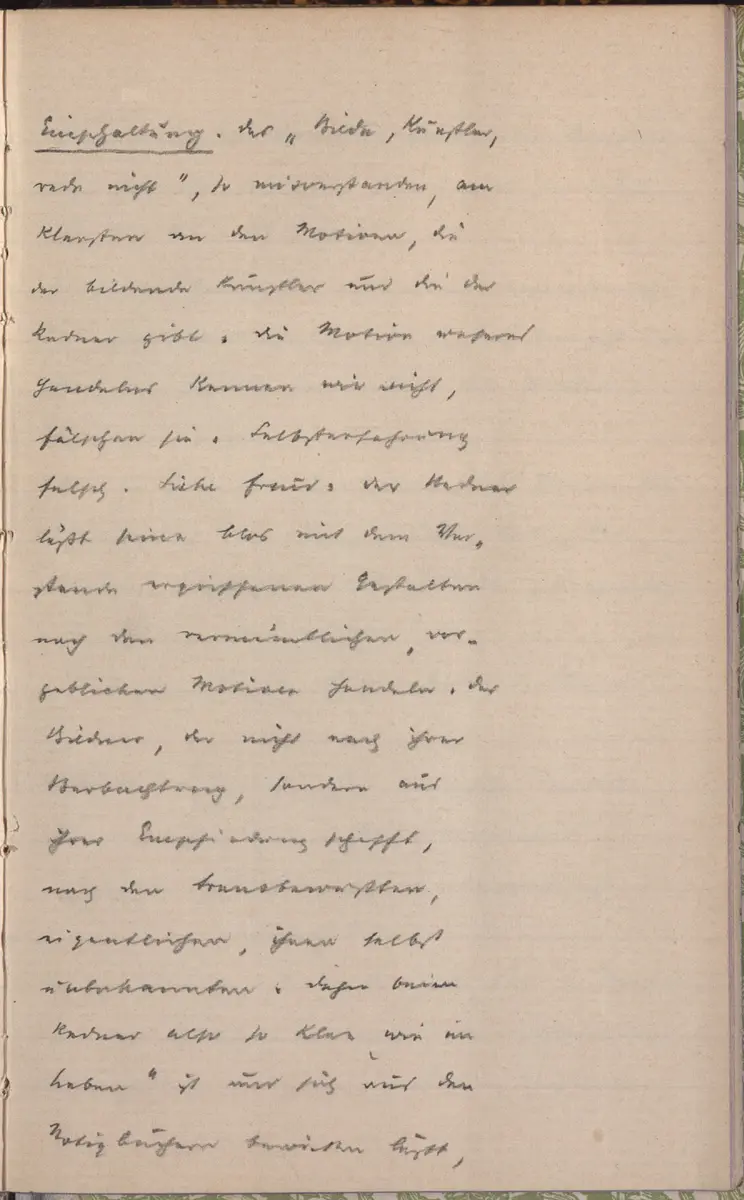 Einschaltung. das „Bilde, Künstler,
rede nicht", so misverstanden, am
klarsten an den Motiven, die
der bildende Künstler und die der
Redner gibt. die Motive unseres
Handelns kennen wir nicht,
fälschen sie. Selbsterfahrung
falsch. Siehe Freud. der Redner
läßt seine blos mit dem Ver-
stande ergriffenen Gestalten
nach den vermeintlichen, vor-
geblichen Motiven handeln. der
Bildner, der nicht nach ihrer
Beobachtung, sondern aus
ihrer Empfindung schafft,
nach den transbewussten,
eigentlichen, ihnen selbst
unbekannten. daher beim
Redner alles so klar „wie im
Leben" ist und sich aus den
Notizbüchern beweisen läßt,